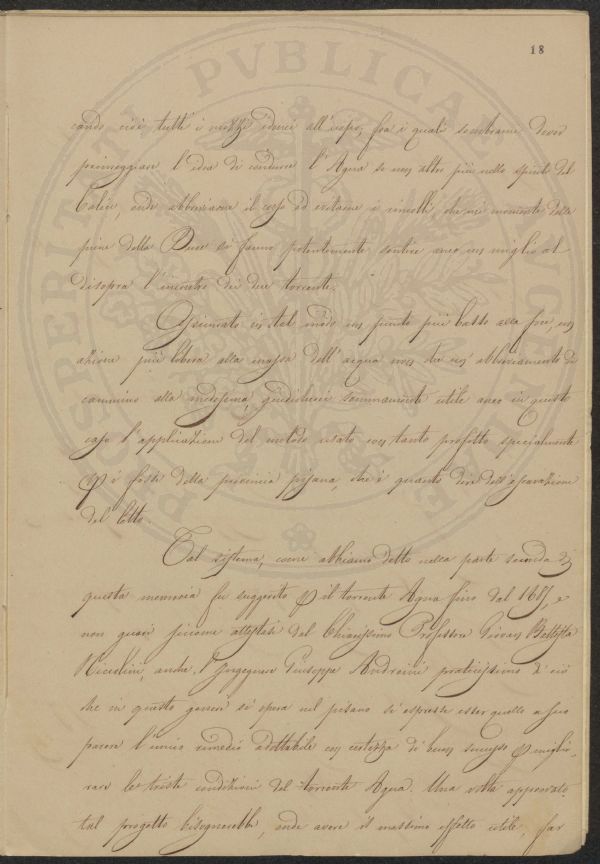 18
cando cioè tutti i mezzi idonei all'uopo, fra i quali sembrami dover
primeggiare l'idea di condurre l'Agna se non altro più nello spirito del
Calice, onde abbreviarne il corso ed evitarne i rincolli, che nei momenti delle
piene della Bure si fanno potentemente sentire anco un miglio al
disopra l'incontro dei due torrenti.
Assicurato in tal modo un punto più basso alla foce, un
azione più libera alla massa dell'acqua non che un abbreviamento di
cammino alla medesima, giudicherei sommamente utile anco in questo
caso l'applicazione del metodo usato con tanto profitto specialmente
p i fossi della provincia pisana, che è quanto dire dell'escavazione
del letto.
Tal sistema, come abbiamo detto nella parte seconda di
questa memoria fu suggerito p il torrente Agna fino dal 168 e
non guari siccome attestasi dal Chiarissimo Professore Giovan Battista
anche l'Ingegnere Giuseppe Andreini praticissimo di ciò
che in questo genere si opera nel pisano si espresse esser quello a suo
parere l'unico rimedio adottabile con certezza di buon successo p miglio-
rare le triste condizioni del torrente Agna. Una volta approvato
tal progetto bisognerebbe, onde avere il massimo effetto utile, far